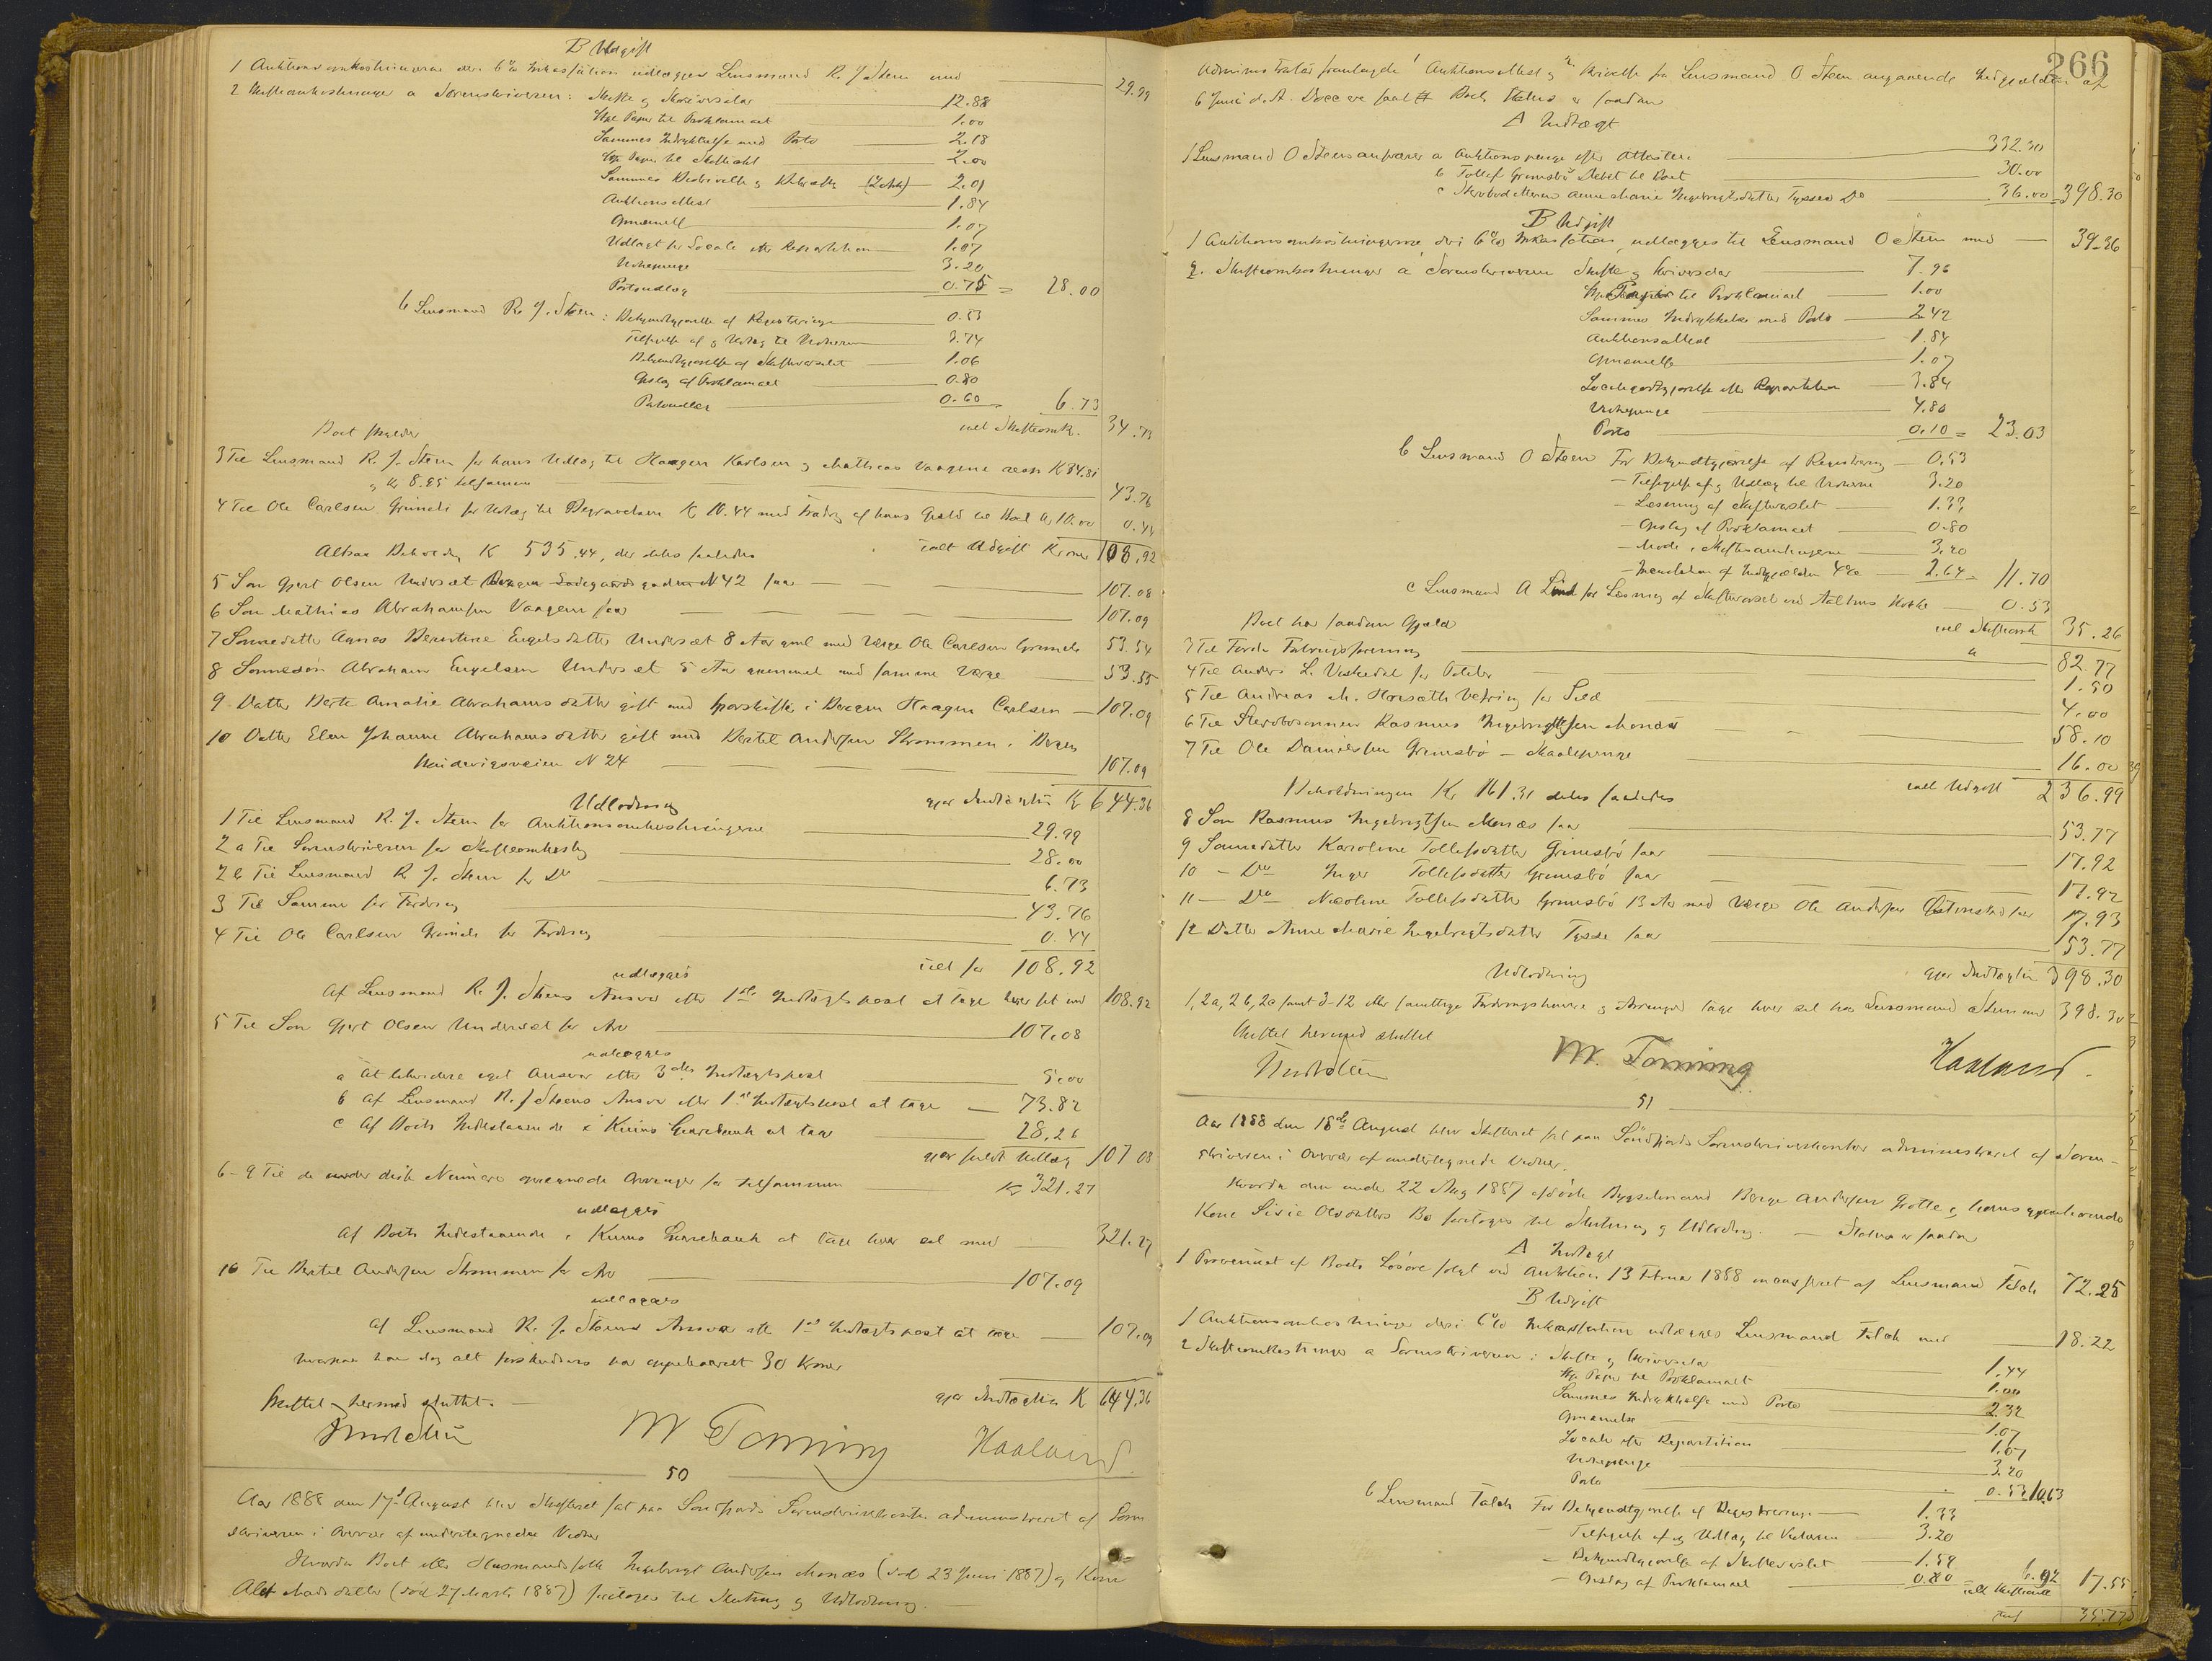 B Udgift
1 Auktionsomkostningerne deri 6% Inkassation udlægges Lensmand R. J. Steen med 29.99
2 Skifteomkostninger a Sorenskriveren: Skifte og Skriversalær 12.88
Stpl Papir til Proklamaet 1.00
Sammes Indrykkelse med Porto 2.18
Stpl Papir til Skiftebrl 2.00
Sammes Beskrivelse og Bekræft (2 Ark) 2.01
Auktionsattest 1.84
Opnævnelse 1.07
Udlagt for Locale efter Repartition 1.07
Vidnepenge 3.20
Portoudlæg 0.75 = 28.00
b Lensmand R. J. Steen: Bekjendtgjørelse af Registeringen 0.53
Tilsigelse af og Udlæg til Vidnerne 3.74
Bekjendtgjørelse af Skiftevarslet 1.06
Opslag af Proklamaet 0.80
Portoudlæg 0.60 = 6.73
Boet skylder
ialt Skifteomk. 34.73
3 Til Lensmand R. J. Steen for hans Udlæg til Haagen Karlsen og Mathias Vaagene resp K 34.81
og Kr 8.95 tilsammen 43.76
4 Til Ole Carlsen Grimeli for Udlæg til Begravelsen K 10.44 med Fradrag af hans Gjeld til Boet Kr 10.00 0.44
Altsaa Beholdng K 535.44, der deles saaledes ialt Udgift Kroner 108.92
5 Søn Gjert Olsen Undersæt Bergen Ladegaardsgaden N 42 faar 107.08
6 Søn Mathias Abrahamsen Vaagene faar 107.09
7 Sønnedatter Agnes Berntine Engelsdatter Undersæt 8 Aar gml med Værge Ole Carlsen Grimeli 53.54
8 Sønnesøn Abraham Engelsen Undersæt 5 Aar gammel med samme Værge 53.55
9 Datter Berte Amalie Abrahamsdatter gift med Sporskifter i Bergen Haagen Carlsen 107.09
10 Datter Elen Johanne Abrahamsdatter gift med Bertel Andersen Strømmen i Bergen
N 24 107.09
Udlodning
gjør Indtægten Kr 644.36
1 Til Lensmand R. J. Steen for Auktionsomkostningerne 29.99
2 a Til Sorenskriveren for Skifteomkostng 28.00
2 b Til Lensmand R. J. Steen for Do 6.73
3 Til Samme for Fordring 43.76
4 Til Ole Carlsen Grimeli for Fordring 0.44
ialt for 108.92
udlægges
Af Lensmand R. J. Steens Ansvar efter 1ste Indtægtspost at tage hver sit med 108.92
5 Til Søn Gjert Olsen Undersæt for Arv 107.08
udlægges
a At likvidere eget Ansvar efter 3die Indtægtspost 5.00
b Af Lensmand R. J. Steens Ansvar efter 1ste Indtægtspost at tage 73.82
c Af Boets Indestaaende i Kinns Sparebank at tage 28.26
gjør fuldt Udlæg 107.08
6-9 Til de under disse Numere opregnede Arvinger for tilsammen Kr 321.27
udlægges
Af Boets Indestaaende i Kinns Sparebank at tage hver sit med 321.27
10 Til Bertel Andersen Strømmen for Arv 107.09
udlægges
Af Lensmand R. J. Steens Ansvar efter 1ste Indtægtspost at tage 107.09
hvorpaa han dog alt forskudsvis har oppebaaret 30 Kroner
gjør Indtægten K 644.36
Skiftet hermed sluttet.
M Torning Haaland
50
Aar 1888 den 17de August blev Skifteret sat paa Søndfjords Sorenskriverkontor administreret af Soren
skriveren i Overvær af undertegnede Vidner
Hvorda Boet efter Husmandsfolk Ingebrigt Andersen Monæs (død 23 Juni 1887) og Kone
Alet Madsdatter (død 27 Marts 1887) foretoges til Slutning og Udlodning.
266
Administrator fremlagde 1 Auktionsattest og 2 Skrivelse fra Lensmand O Steen angaaende Indgjælden af
6 Juni d. A. Boets Status er saadan
A Indtægt
1 Lensmand O Steens ansvar a Auktionspenge efter Attesten 332.30
b Tollef Grimsbø Debet til Boet 30.00
c Anne Marie Ingebrigtsdatter Tysse Do 36.00 = 398.30
B Udgift
1 Auktionsomkostningerne deri 6% Inkassation udlægges til Lensmand O Steen med 39.36
2. Skifteomkostninger a Sorenskriveren Skifte og Skriversalær 7.96
Stpl Papir til Proklamaet 1.00
Sammes Indrykkelse med Porto 2.42
Auktionsattest 1.84
Opnævnelse 1.07
Localegodtgjørelse efter Repartition 3.84
Vidnepenge 4.80
Porto 0.10 = 23.03
b Lensmand O Steen For Bekjendtgjørelse af Registrering 0.53
- Tilsigelse af og Udlæg til Vidnerne 3.20
- Læsning af Skiftevarslet 1.33
- Opslag af Proklamaet 0.80
- Møde i Skiftesamlingerne 3.20
- Incassation af Indgjælden 4% 2.64 = 11.70
c Lensmand A Lind for Læsning af Skiftevarsel ved Aalhus Kirke 0.53
Boet har saadan Gjæld
ialt Skifteomk 35.26
3 Til Førde 82.77
4 Til Anders L. Viskedal for Poteter 1.50
5 Til Andreas M. Horsæth Vefring for Sild 4.00
6 Til Rasmus Ingebrigtsen Monæs 58.10
7 Til Ole Danielsen Grimsbø - 16.00
Beholdningen Kr 161.31 deles saaledes ialt Udgift 236.99
8 Søn Rasmus Ingebrigtsen Monæs faar 53.77
9 Sønnedatter Karoline Tollefsdatter Grimsbø faar 17.92
10 - Do Inger Tollefsdatter Grimsbø faar 17.92
11 - Do Nicoline Tollefsdatter Grimsbø 13 Aar med Værge Ole Andersen faar 17.93
12 Datter Anne Marie Ingebrigtsdatter Tysse faar 53.77
Udlodning
gjør Indtægten 398.30
1, 2a, 2b, 2c samt 3-12 eller samtlige Fordringshavere og Arvinger tage hver sit hos Lensmand Steen med 398.30
Skiftet hermed sluttet
M. Torning Haaland.
51
Aar 1888 den 18de August blev Skifteret sat paa Søndfjords Sorenskriverkontor administreret af Soren-
skriveren i Overvær af undertegnede Vidner.
Hvorda den under 22 Aug 1887 afdøde Bygselmand Børge Andersen Grotle og hans gjenlevende
Kone Sisie Olsdatters Bo foretoges til Slutning og Udlodng. - Status er saadan
A Indtægt
1 Provenuet af Boets Løsøre solgt ved Auktion 13 Februar 1888 ansvaret af Lensmand Falch 72.25
B Udgift
1 Auktionsomkostninger deri 6% Inkassation udlægges Lensmand Falch med 18.22
2 Skifteomkostninger a Sorenskriveren: Skifte og Skriversalær 1.44
Stpl Papir til Proklamaet 1.00
Sammes Indrykkelse med Porto 2.32
Opnævnelse 1.07
Locale efter Repartition 1.07
Vidnepenge 3.20
Porto 0.53 10.63
b Lensmand Falch For Bekjendtgjørelse af Registrering 1.33
- Tilsigelse af og Udlæg til Vidnerne 3.20
- Bekjendtgjørelse af Skiftevarslet 1.59
- Opslag af Proklamaet 0.80 = 6.92
ialt Skifteomk 17.55
35.77